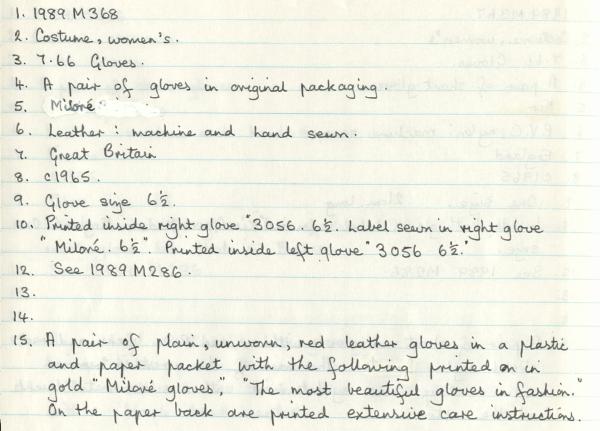 1. 1989 M 368
2. Costume, women's.
3. 7.66 Gloves.
4. A pair of gloves in original packaging.
5. Miloré
6. Leather: machine and hand sewn.
7. Great Britain
8. c1965.
9. Glove size 6½.
10. Printed inside right glove "3056. 6½. Label sewn in right glove
"Miloré. 6½". Printed inside left glove "3056 6½."
12. See 1989 M 286.
13.
14.
15. A pair of plain, unworn, red leather gloves in a plastic
and paper packet with the following printed on in
gold "Miloré gloves", "The most beautiful gloves in fashion."
On the paper back are printed extensive care instructions.